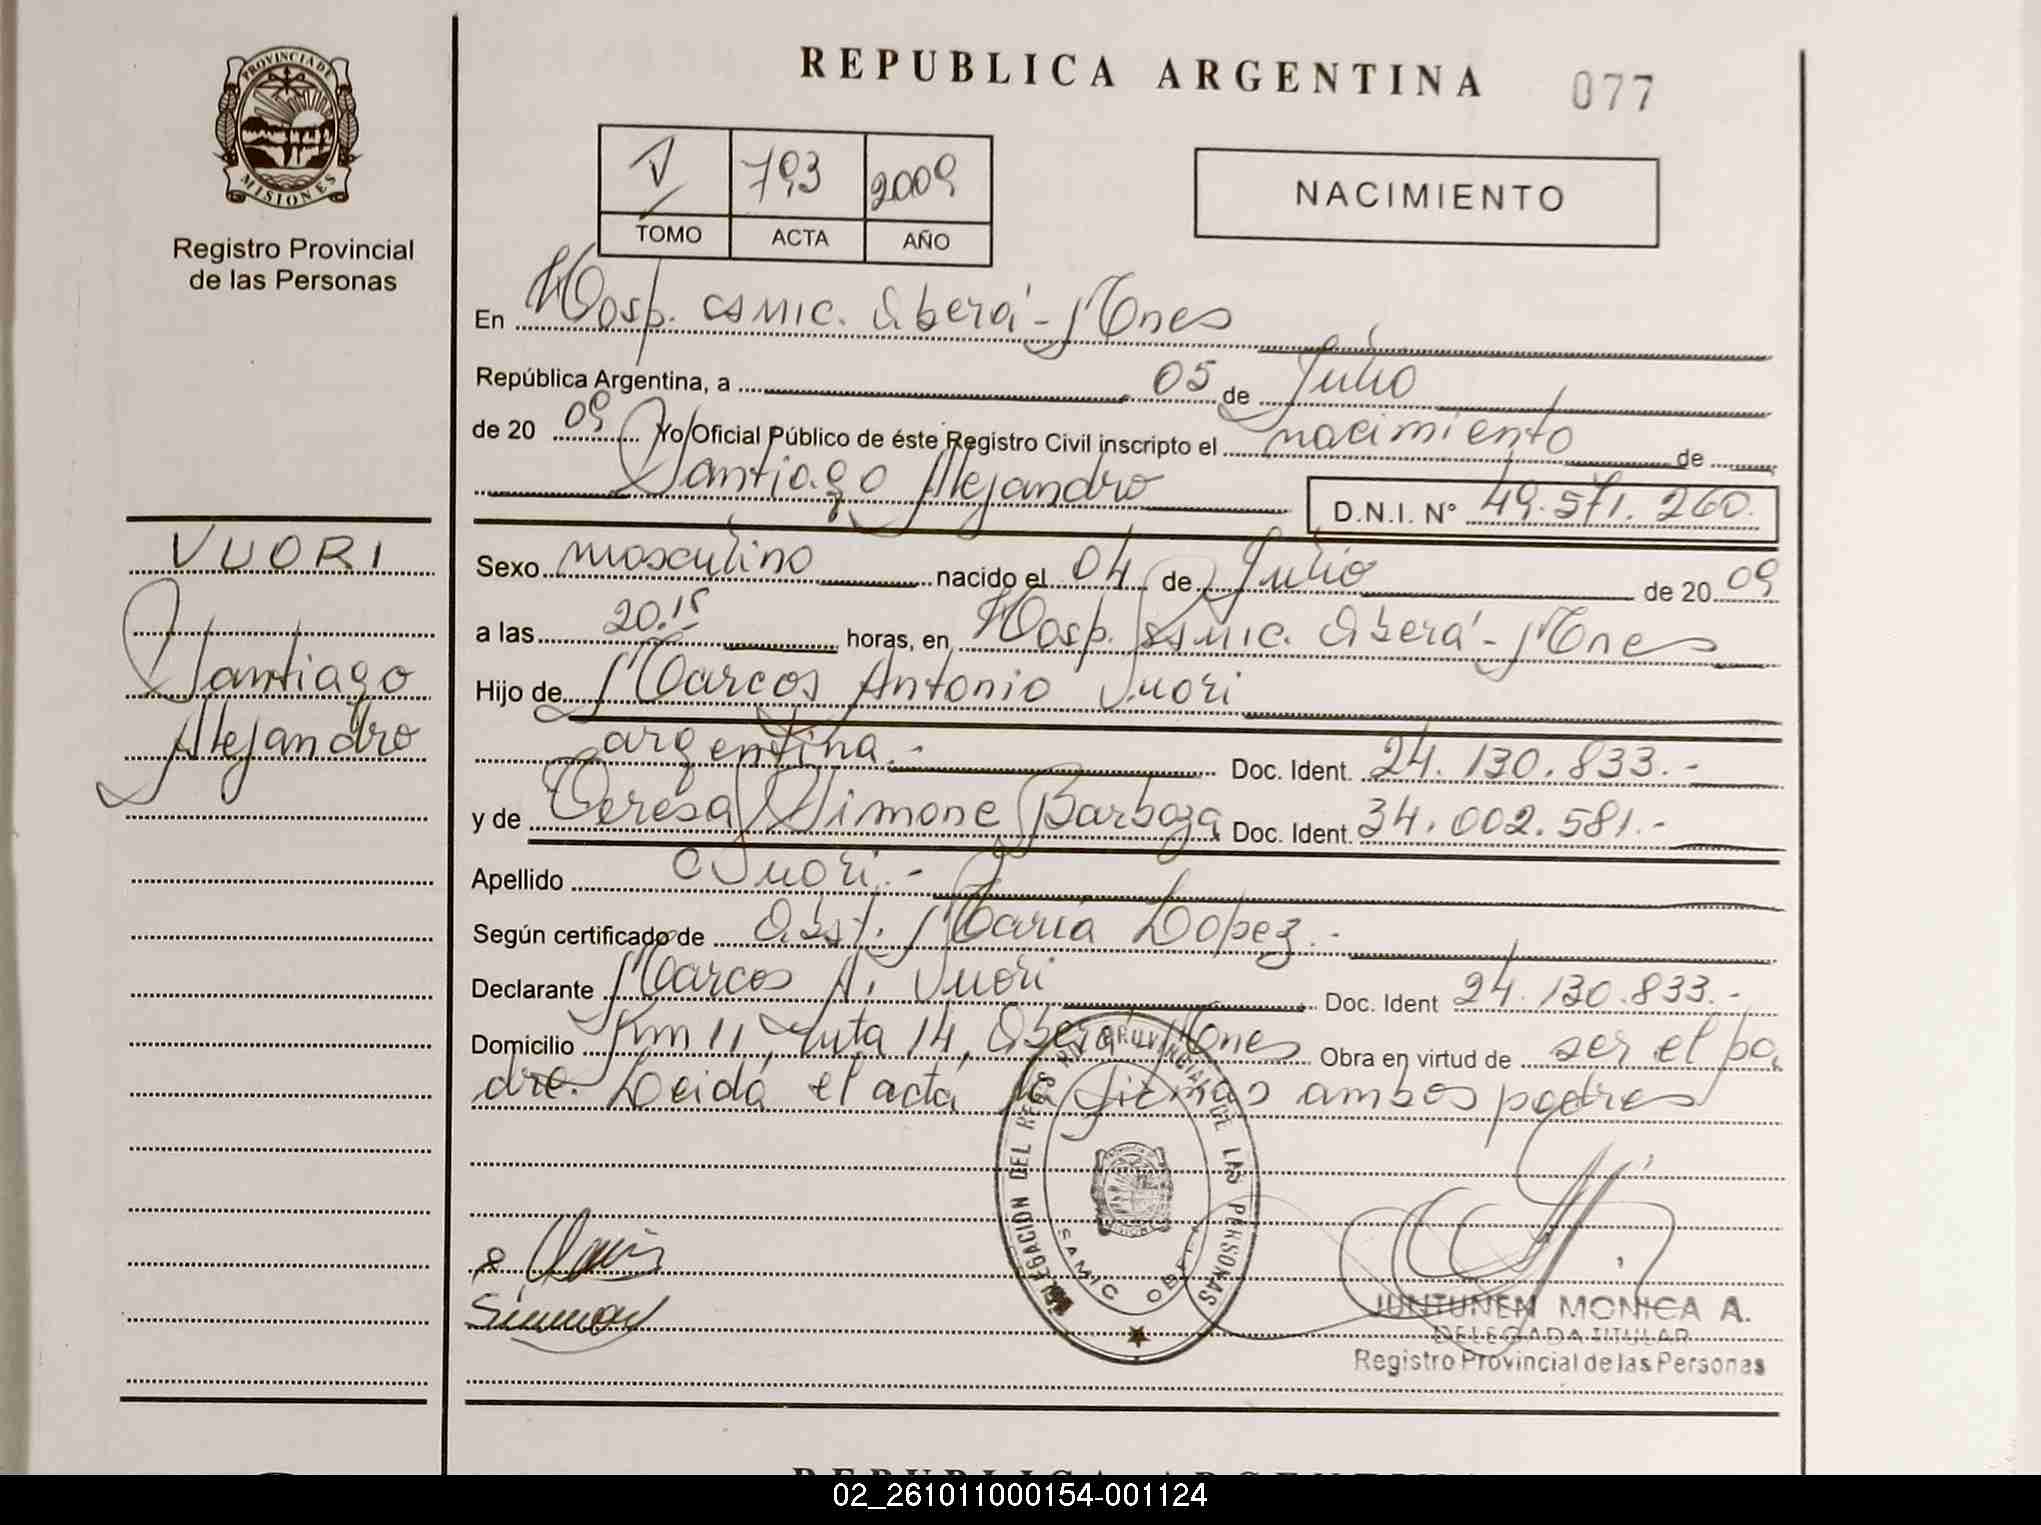 PROVINCIA DE
MISIONES
Registro Provincial
de las Personas
VUORI
Santiago
Alejandro
REPUBLICA ARGENTINA 077
793 2009
TOMO ACTA AÑO
NACIMIENTO
En Hosp. SAMIC. Oberá - Mnes
República Argentina, a 05 de Julio
de 20 09 Yo Oficial Público de éste Registro Civil inscripto el nacimiento de
Santiago Alejandro D.N.I. N° 49.571.260.
Sexo masculino nacido el 04 de Julio de 20 09
a las 20.15 horas, en Hosp. SAMIC. Oberá - Mnes
Hijo de Marcos Antonio Vuori
argentina.- Doc. Ident. 24.130.833.-
y de Teresa Simone Barboza Doc. Ident. 34.002.581.-
Apellido Vuori.-
Según certificado de Obst. María Lopez.-
Declarante Marcos A. Vuori Doc. Ident 24.130.833.-
Domicilio Km 11, ruta 14, Oberá Mnes Obra en virtud de ser el pa
dre. Leida el acta la firman ambos padres
DELEGACION DEL REGISTRO PROVINCIAL DE LAS PERSONAS
SAMIC OBERA
JUNTUNEN MONICA A.
DELEGADA TITULAR
Registro Provincial de las Personas
REPUBLICA ARGENTINA
02_261011000154-001124